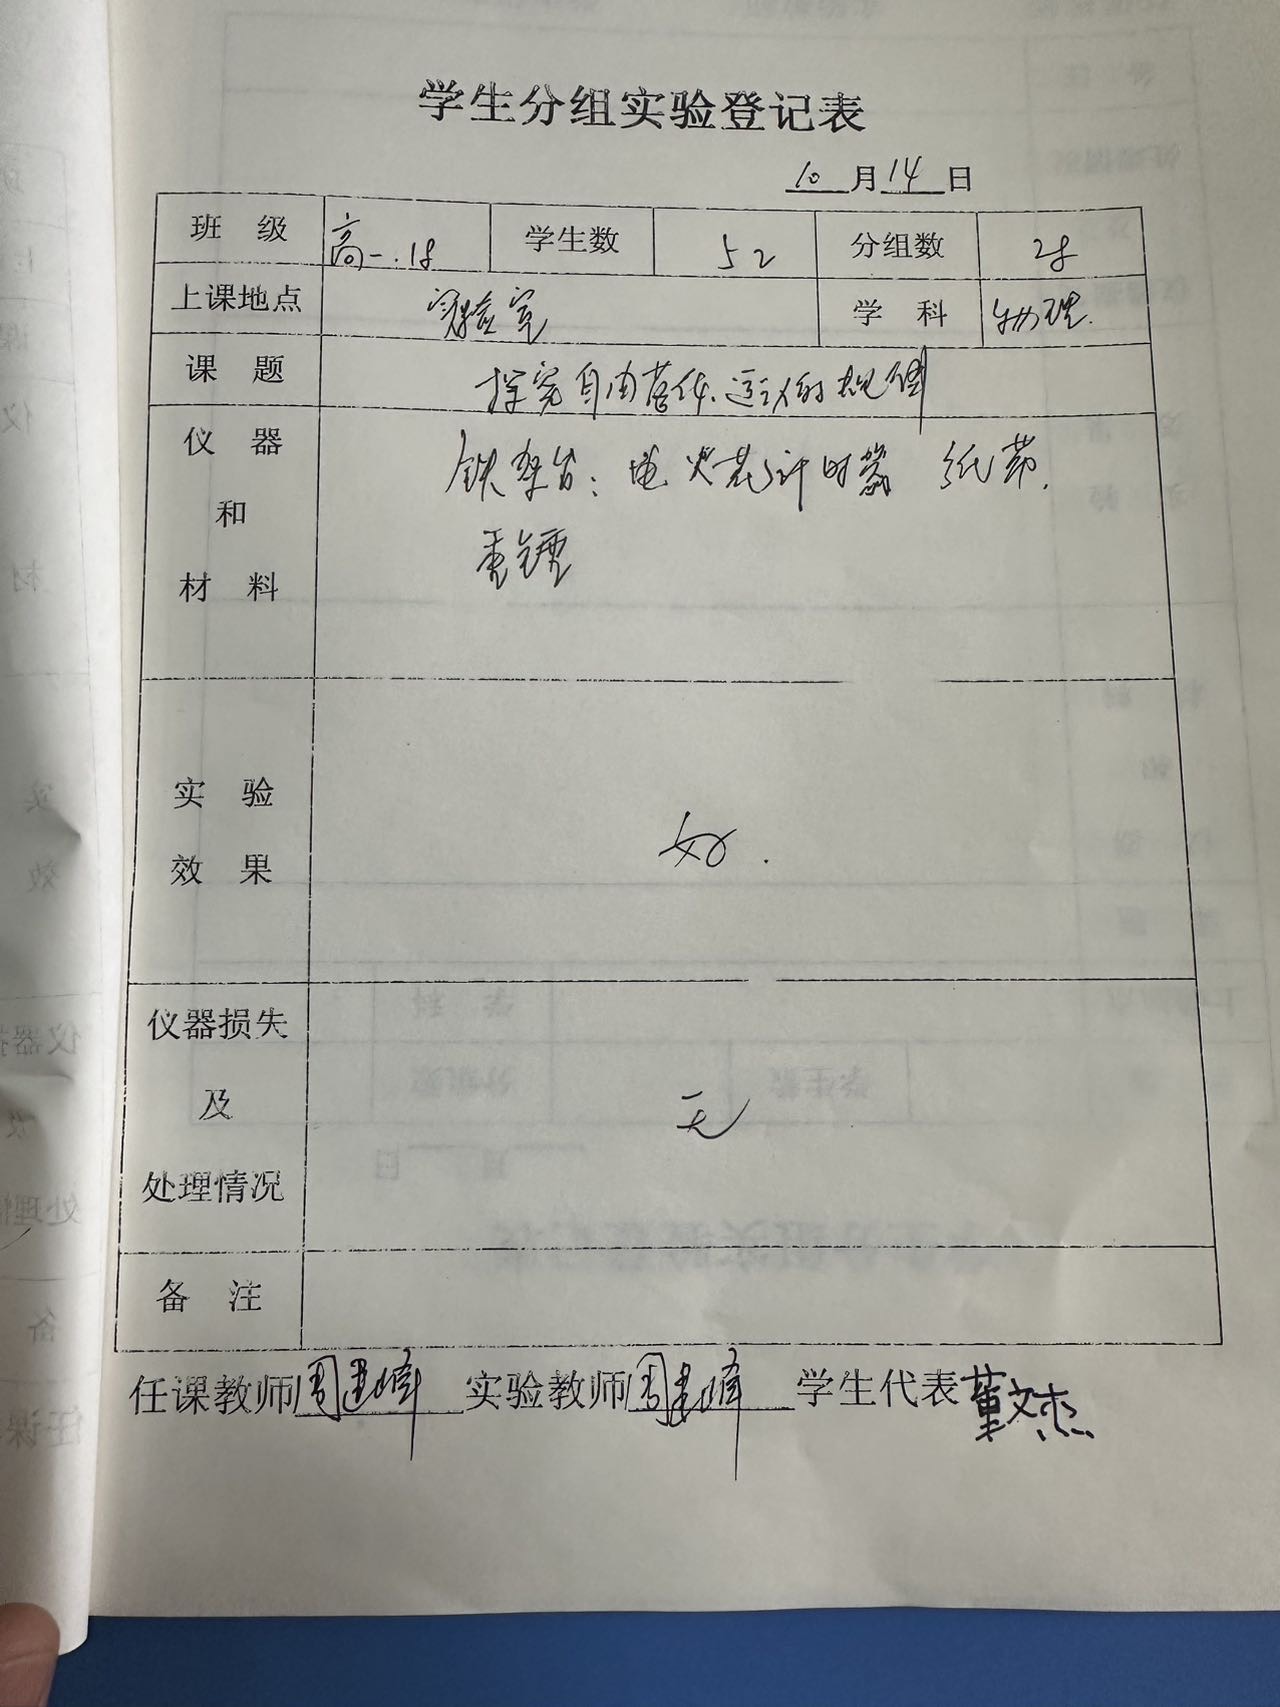 学生分组实验登记表
10月14日
班 级 高一.18 学生数 52 分组数 28
上课地点 实验室 学 科 物理.
课 题 探究自由落体运动的规律
仪 器 和 材 料 铁架台: 电火花计时器 纸带.
重锤
实 验 效 果 好.
仪器损失及处理情况 无
备 注
任课教师周建峰 实验教师周建峰 学生代表董文杰